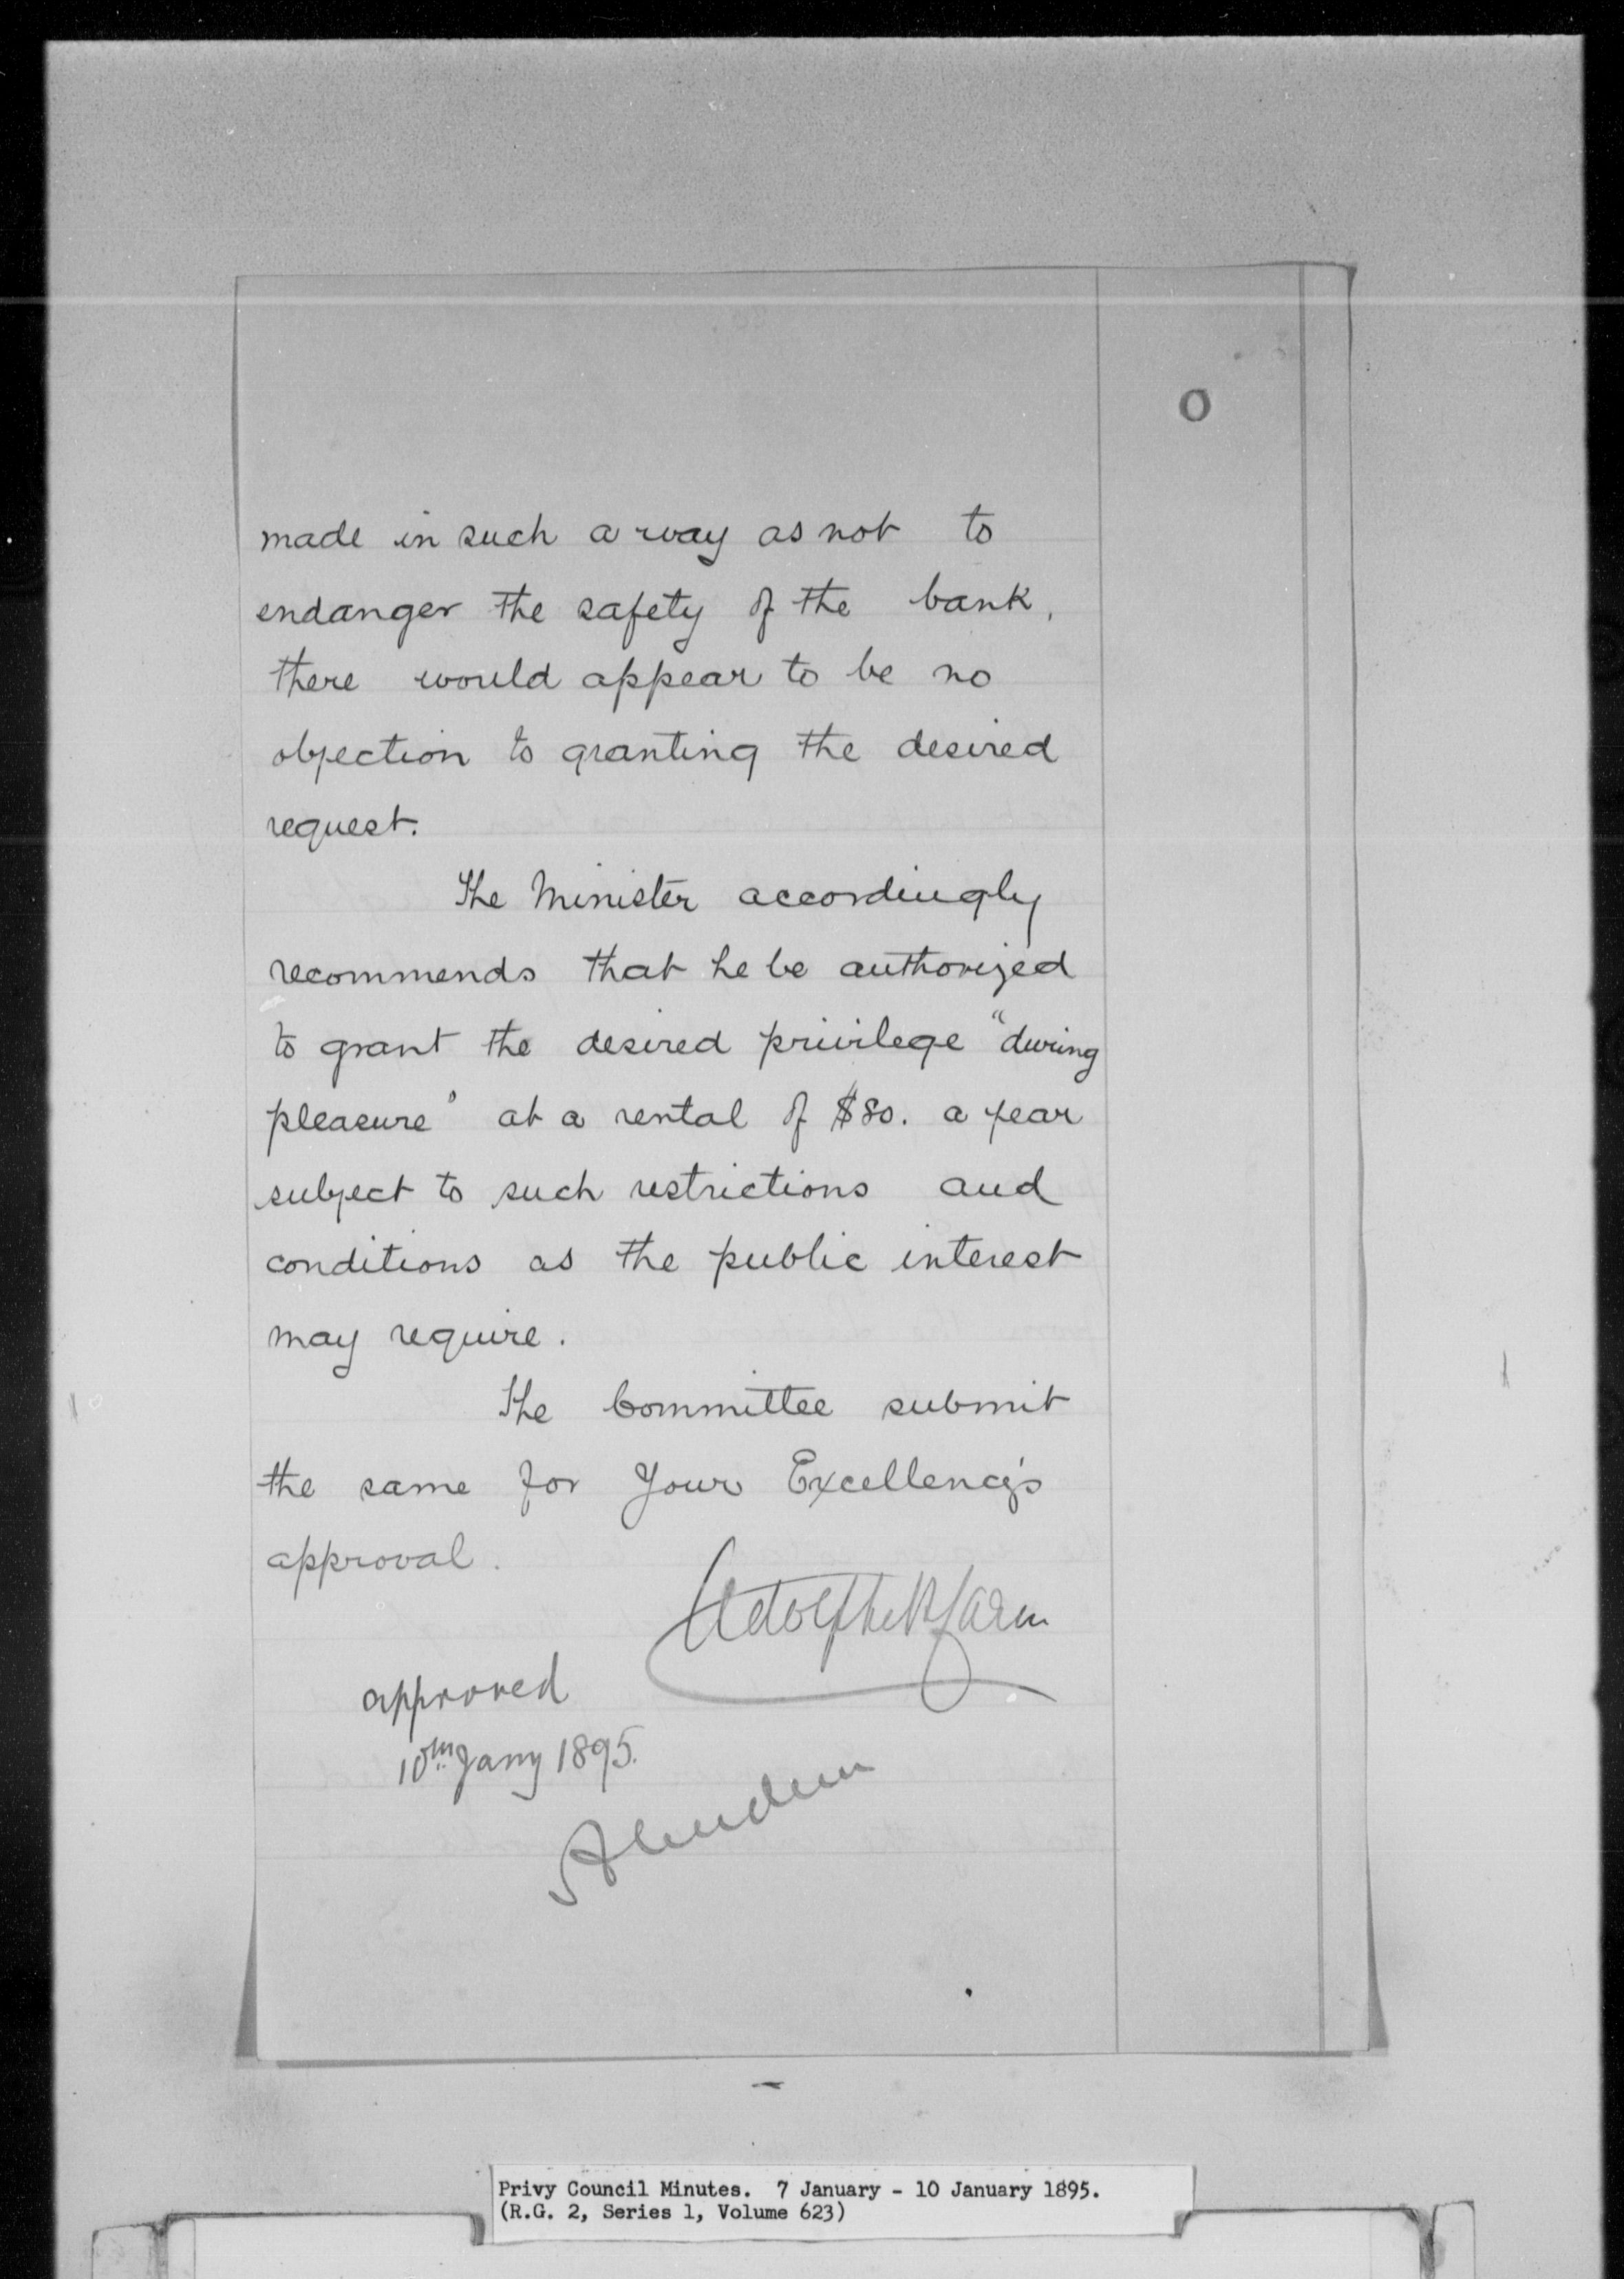 O
made in such a way as not to
endanger the safety of the bank,
there would appear to be no
objection to granting the desired
request.
The Minister accordingly
recommends that he be authorized
to grant the desired privilege "during
pleasure" at a rental of $80. a year
subject to such restrictions and
conditions as the public interest
may require.
The Committee submit
the same for Your Excellency's
approval.
Adolphe P. Caron
approved
10th Jany 1895.
Aberdeen
Privy Council Minutes. 7 January - 10 January 1895.
(R.G. 2, Series 1, Volume 623)